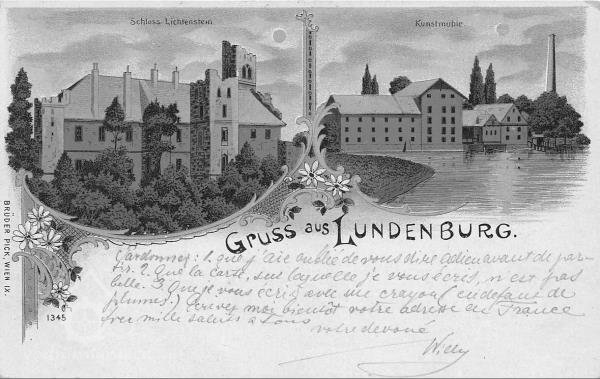 Schloss Lichtenstein.
Kunstmühle.
Gruss aus LUNDENBURG.
BRÜDER PICK, WIEN IX.
1345
Pardonnez: 1. que j'aie oublié de vous dire adieu avant de par-
tir. 2. Que la carte, sur laquelle je vous écris, n'est pas
belle. 3. Que je vous écris avec un crayon (en defaut de
plume.) Ecrivez moi bientôt votre adresse en France
mille saluts a tous
votre devoué
Willy